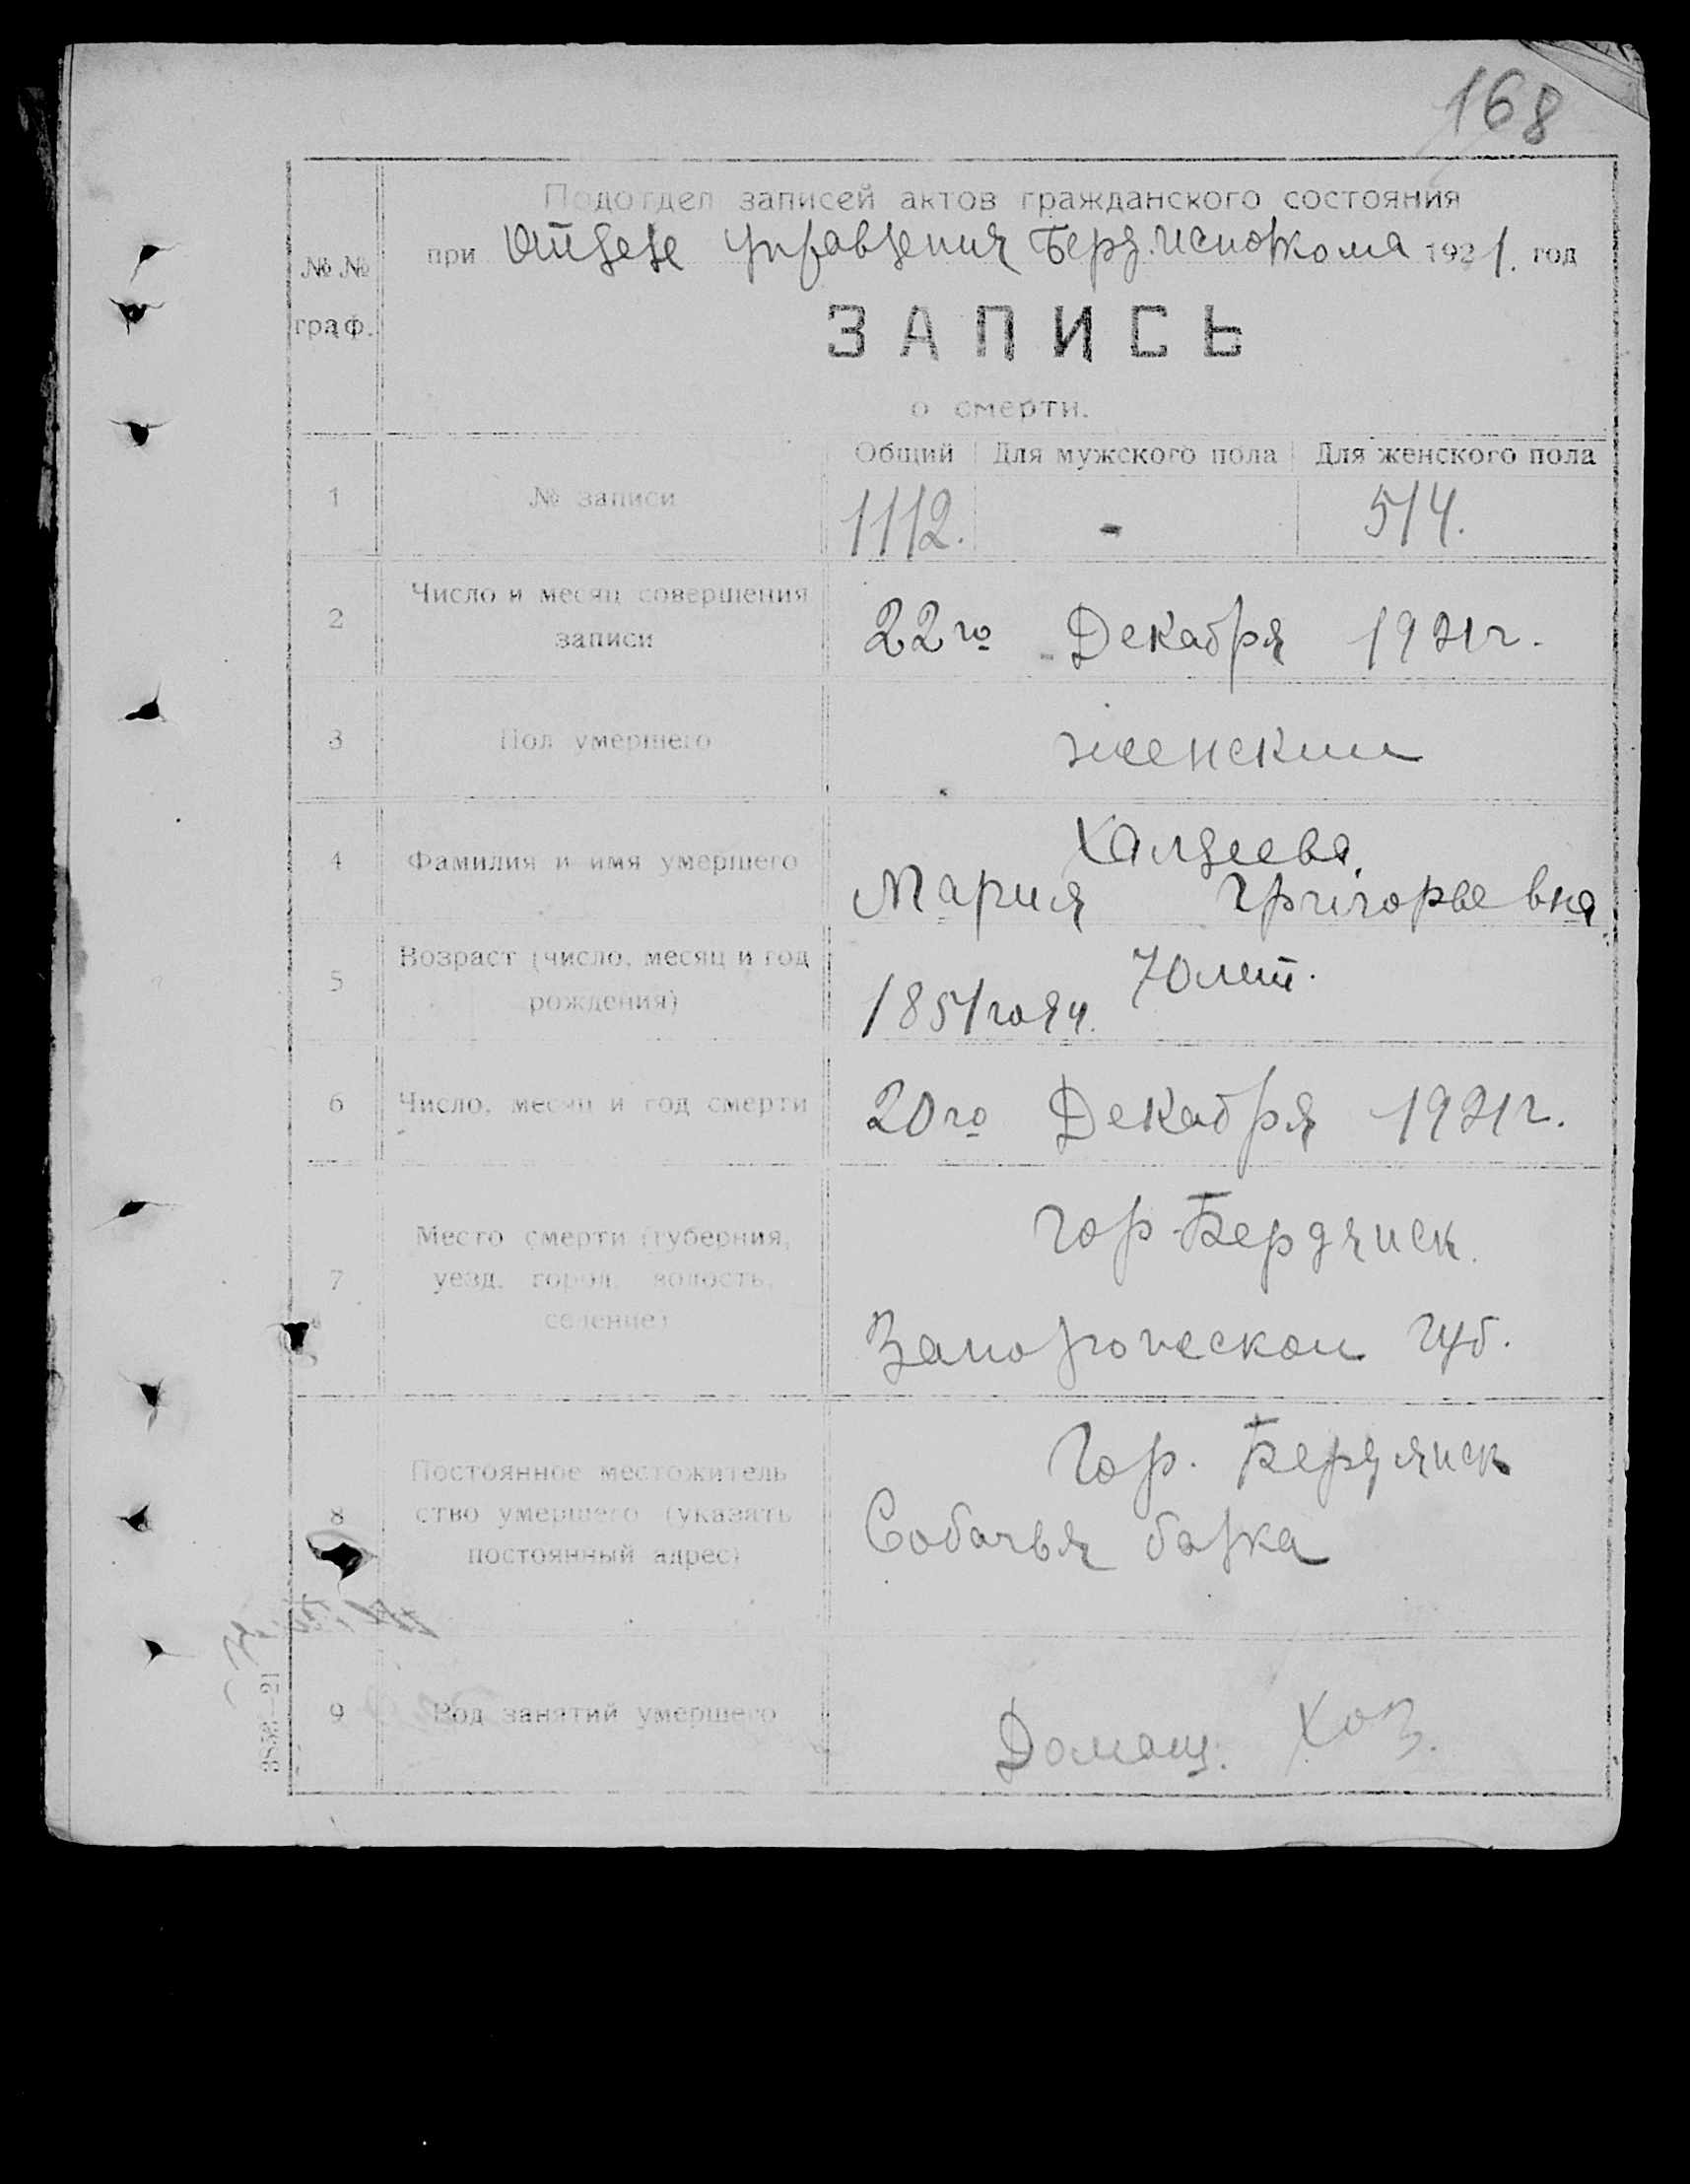 168
Подотдел записей актов гражданского состояния
№ № граф.
при Отделе Управления Берд. исполкома 1921. год
ЗАПИСЬ
о смерти.
Общий Для мужского пола Для женского пола
1 № записи 1112. - 514.
2 Число и месяц совершения записи 22го Декабря 1921г.
3 Пол умершего женский
4 Фамилия и имя умершего Халдеева
Мария Григорьевна
5 Возраст (число, месяц и год рождения) 70 лет.
1851 года
6 Число, месяц и год смерти 20го Декабря 1921г.
7 Место смерти (губерния, уезд, город, волость, селение) гор. Бердянск
Запорожской губ.
8 Постоянное местожитель
ство умершего (указать постоянный адрес) Гор. Бердянск
Собачья балка
9 Род занятий умершего Домаш. Хоз.
3853—21